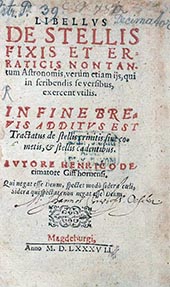 LIBELLVS
DE STELLIS
FIXIS ET ER-
RATICIS NON TAN-
tum Astronomis, verùm etiam ijs, qui
in scribendis se versibus,
exercent vtilis.
IN FINE BRE-
VIS ADDITVS EST
Tractatus de stellis crinitis siue co-
metis, & stellis cadentibus.
AVTORE HENRICO DE-
cimatore Giffhornensi.
Qui negat esse Deum, spectet modò sidera cœli,
sidera qui spectat, negat esse Deum.
Magdeburgi,
Anno M. D. LXXXVII.